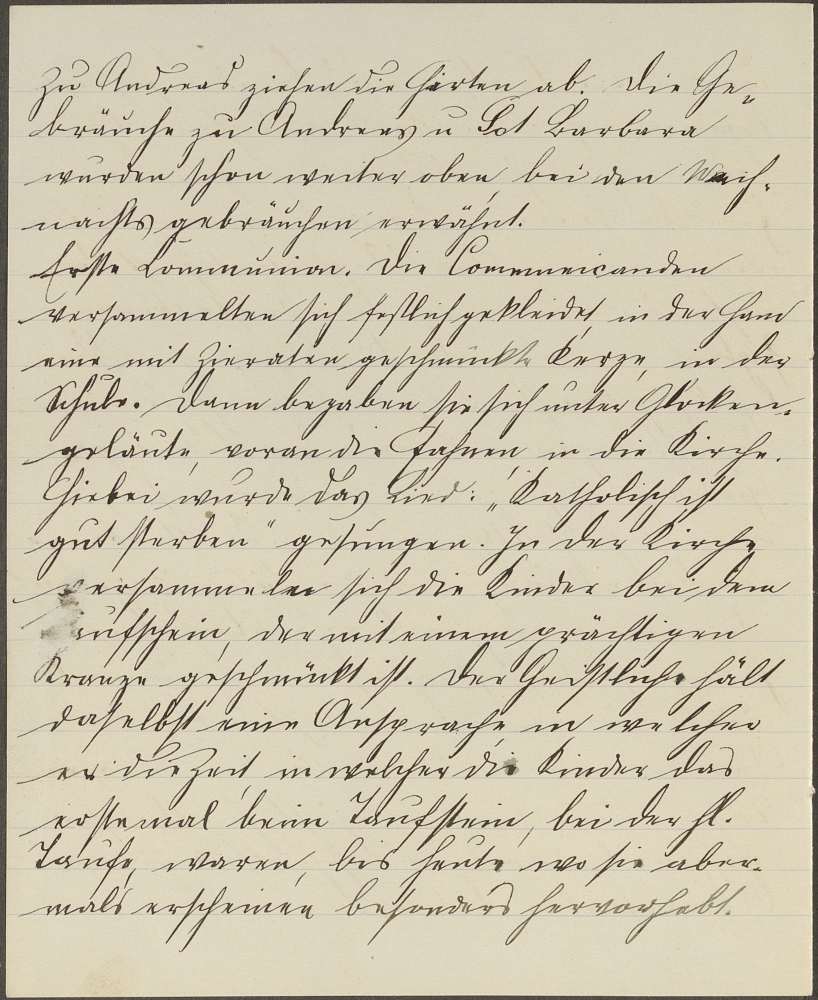 Zu Andreas ziehen die Hirten ab. Die Ge-
bräuche zu Andreas u Sct Barbara
wurden schon weiter oben, bei den Weih-
nachtsgebräuchen erwähnt.
Erste Communion. Die Communicanden
versammelten sich festlich gekleidet, in der Hand
eine mit Zieraten geschmückte Kerze, in der
Schule. Dann begaben sie sich unter Glocken-
geläute, voran die Fahnen, in die Kirche.
Hiebei wurde das Lied: „Katholisch ist
gut sterben" gesungen. In der Kirche
versammeln sich die Kinder bei dem
der mit einem prächtigen
Kranze geschmückt ist. Der Geistliche hält
daselbst eine Ansprache, in welcher
er die Zeit, in welcher die Kinder das
erstemal beim Taufstein, bei der hl.
Taufe, waren, bis heute wo sie aber-
mals erscheinen besonders hervorhebt.